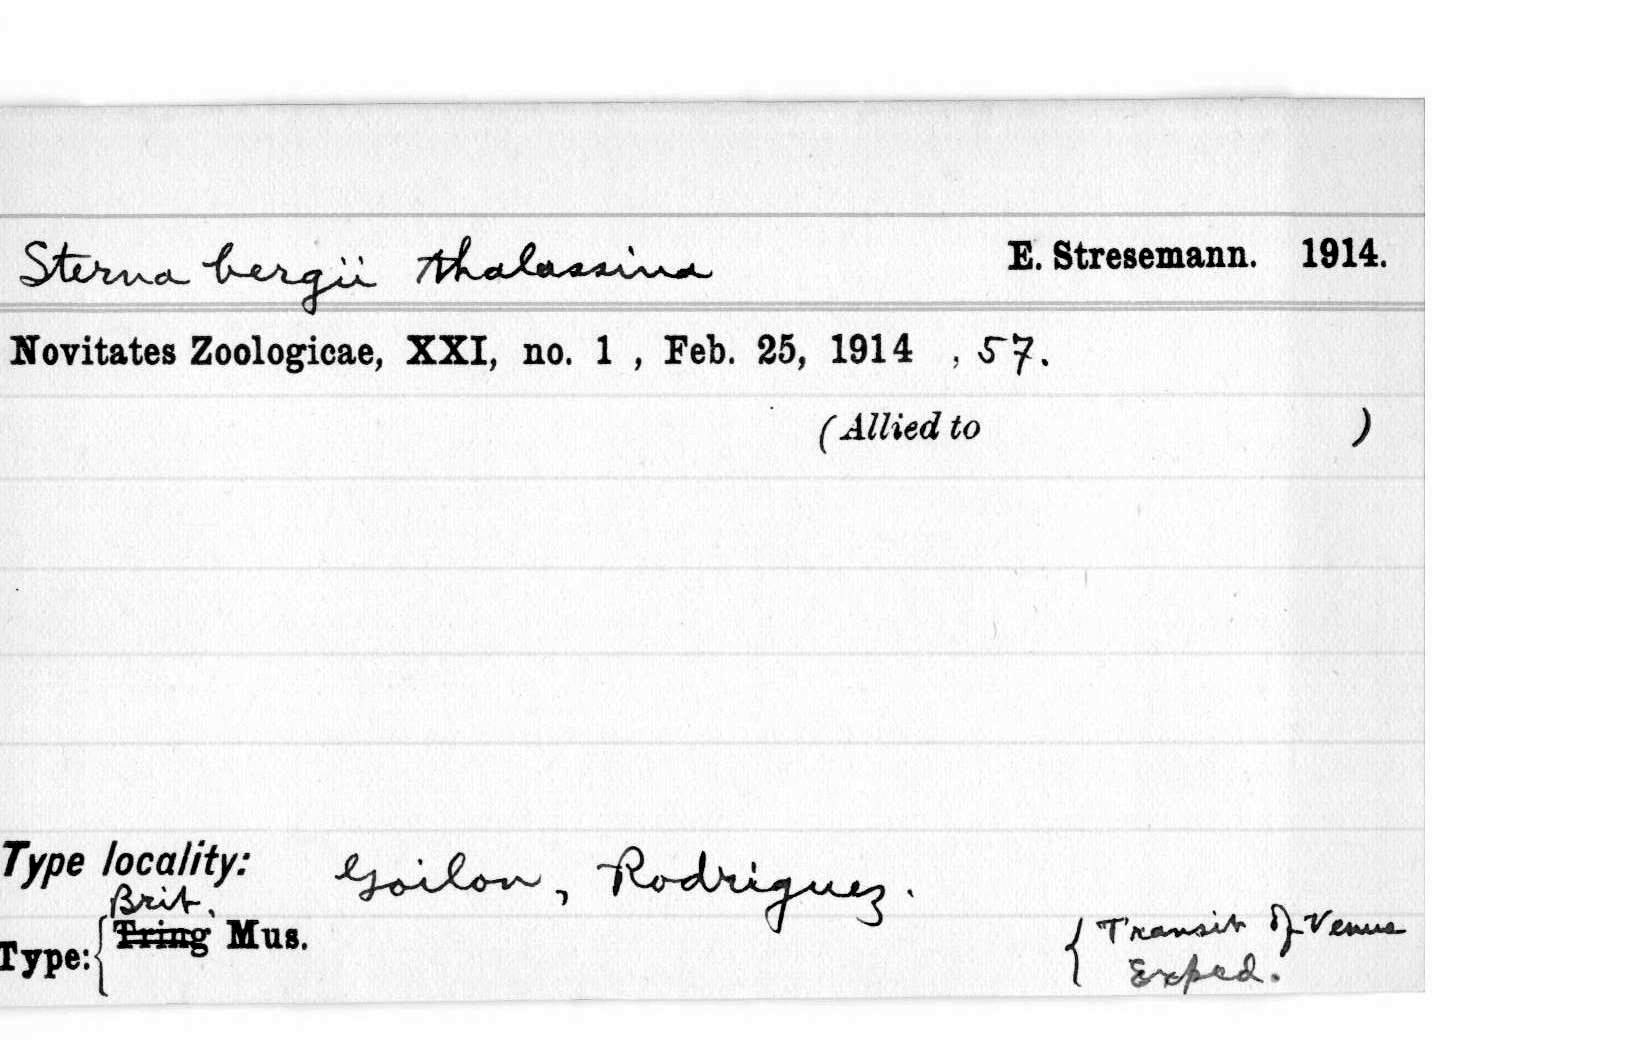 Sterna bergii thalassina E. Stresemann. 1914.
Novitates Zoologicae, XXI, no. 1 , Feb. 25, 1914 , 57.
(Allied to )
Type locality: Goilon, Rodriguez.
Brit.
Type: { Tring Mus. { Transit of Venus
Exped.